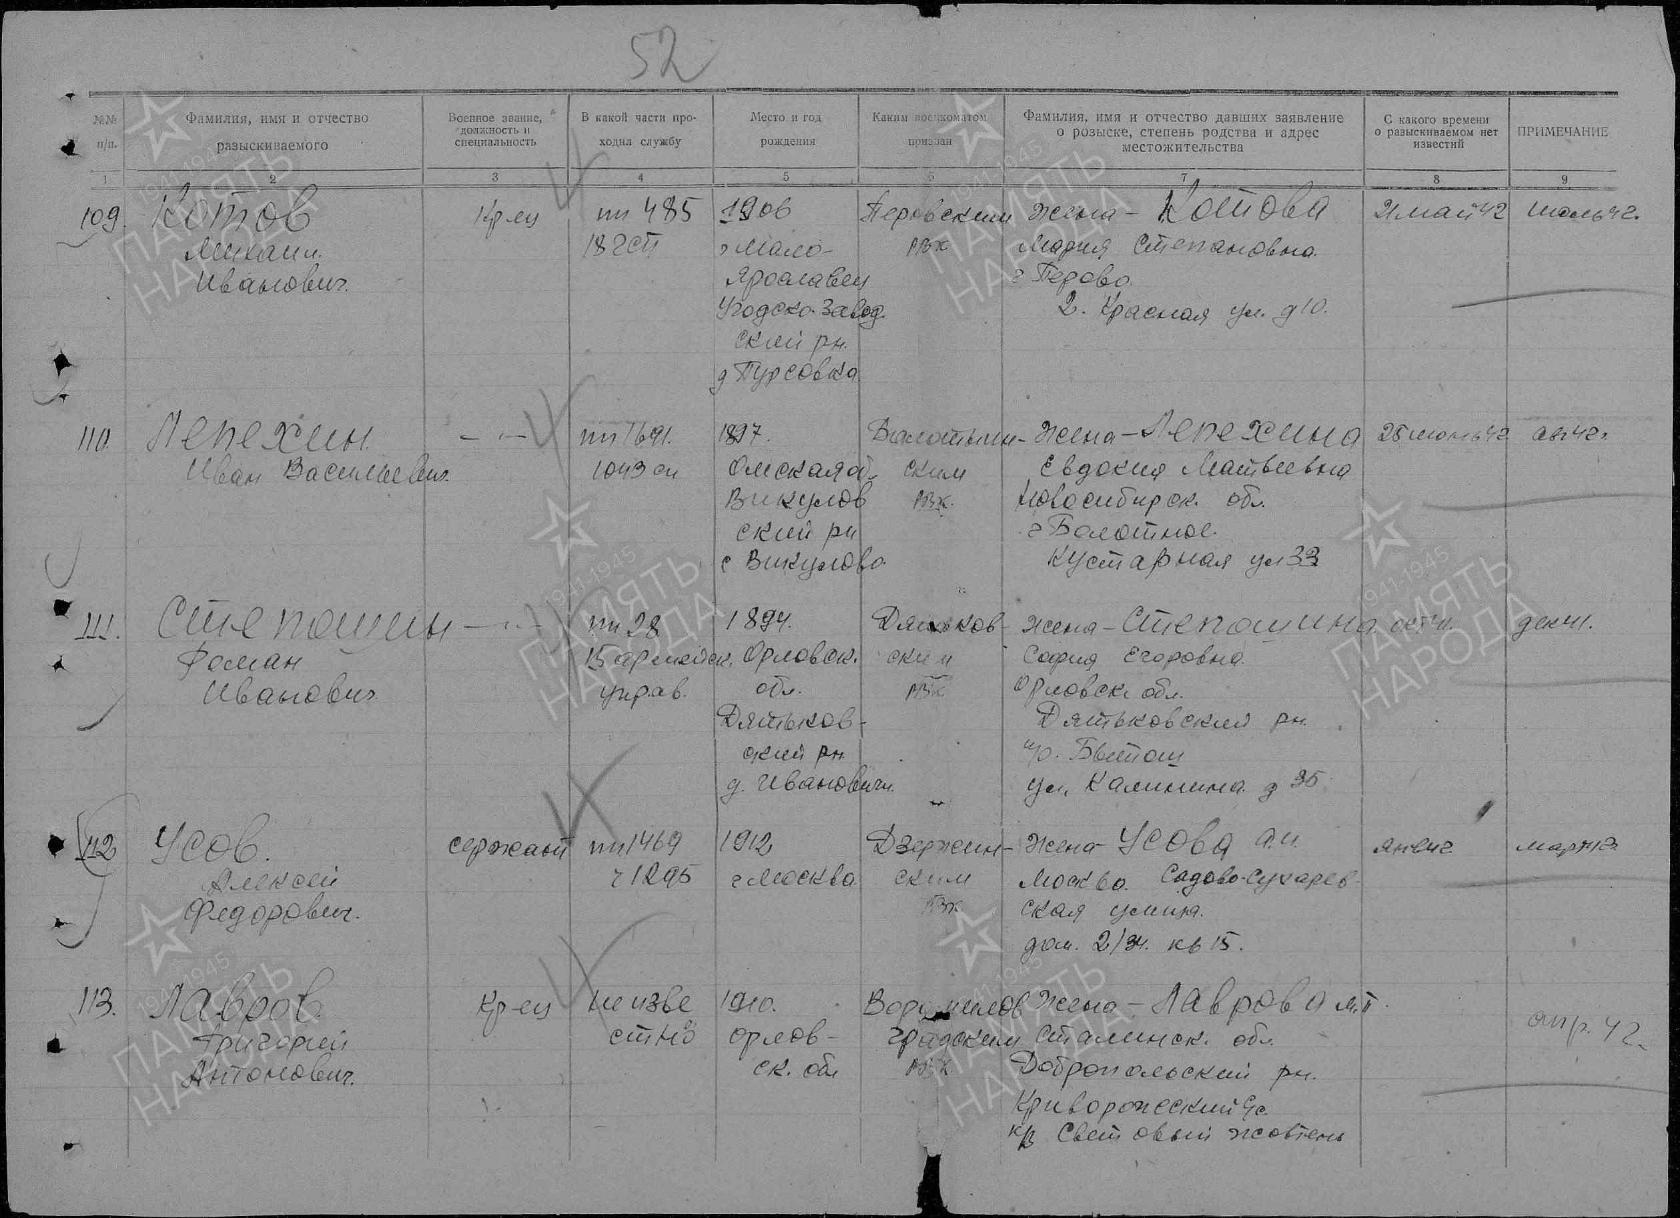 52
№№ п/п.
Фамилия, имя и отчество разыскиваемого
Военное звание, должность и специальность
В какой части проходил службу
Место и год рождения
Каким военкоматом призван
Фамилия, имя и отчество давших заявление о розыске, степень родства и адрес местожительства
С какого времени о разыскиваемом нет известий
ПРИМЕЧАНИЕ
1 2 3 4 5 6 7 8 9
109. Котов
Михаил
Иванович.
Кр-ец
пп 485
18 гсп
1906
г Мало-
Ярославец
Угодско-Завод
ский рн.
Перовским
РВК
Жена - Котова
Мария Степановна
г Перово
2. Красная ул. д 10.
май 42
июль 42.
110. Лепехин
Иван Васильевич.
- " -
пп 1691.
1043 сп
1897.
Омская об.
Викулов
ский рн
с Викулово
Болотнин-
ским
РВК.
Жена - Лепехина
Евдокия Матвеевна
Новосибирск. обл.
г Болотное.
Кустарная ул 33
111. Степошин
Роман
Иванович
- " -
пп 28
15 армейск.
управ.
1894.
Орловск.
обл.
Дятьков-
ский рн
д. Ивановичи.
Дятьков-
ским
РВК
Жена - Степошина
София Егоровна.
Орловск. обл.
Дятьковский рн.
п/о. Бытош
ул. Калинина д 35
дек 41.
112 Усов.
Алексей
Федорович.
сержант
пп 1469
ч 1295
1912
г Москва
Дзержин-
ским
РВК
Жена - Усова А.И.
Москва. Садово-Сухарев-
ская улица.
дом. 2/34. кв 15.
113. Лавров.
Григорий
Антонович.
Кр-ец
Неизве
стно
1910.
Орлов-
ск. обл
Ворошилов
градским
РВК
Жена - Лаврова М.П
Сталинск. обл.
Добропольский рн.
Криворожский с/с
апр. 42.
1941-1945
ПАМЯТЬ
НАРОДА